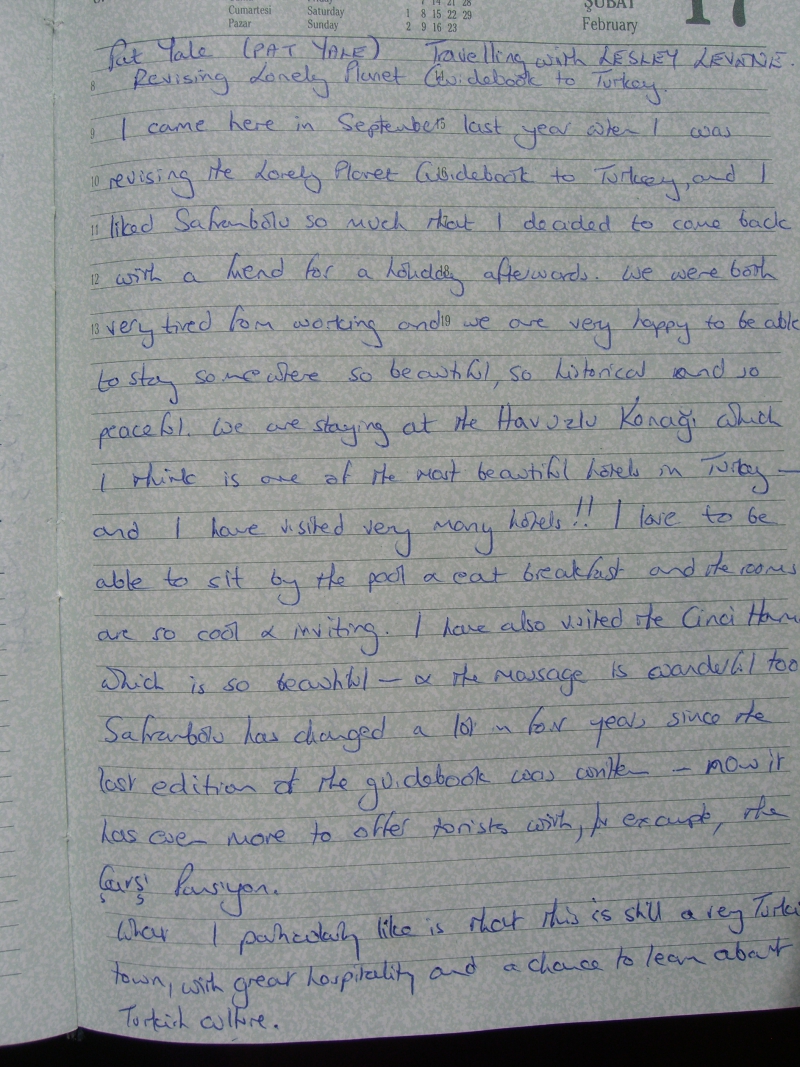 Cumartesi Saturday 1 8 15 22 29 ŞUBAT 17
Pazar Sunday 2 9 16 23 February
Pat Yale (PAT YALE) Travelling with LESLEY LEVENE.
8 Revising Lonely Planet Guidebook to Turkey.
9 I came here in September last year when I was
10 revising the Lonely Planet Guidebook to Turkey, and I
11 liked Safranbolu so much that I decided to come back
12 with a friend for a holiday afterwards. We were both
13 very tired from working and 19 we are very happy to be able
to stay somewhere so beautiful, so historical and so
peaceful. We are staying at the Havuzlu Konağı which
I think is one of the most beautiful hotels in Turkey —
and I have visited very many hotels!! I love to be
able to sit by the pool & eat breakfast and the rooms
are so cool & inviting. I have also visited the Cinci Hamı
which is so beautiful — & the massage is wonderful too
Safranbolu has changed a lot in four years since the
last edition of the guidebook was written — now it
has even more to offer torists with, for example, the
Çarşı Pansiyon.
What I particularly like is that this is still a very Turki
town, with great hospitality and a chance to learn about
Turkish culture.